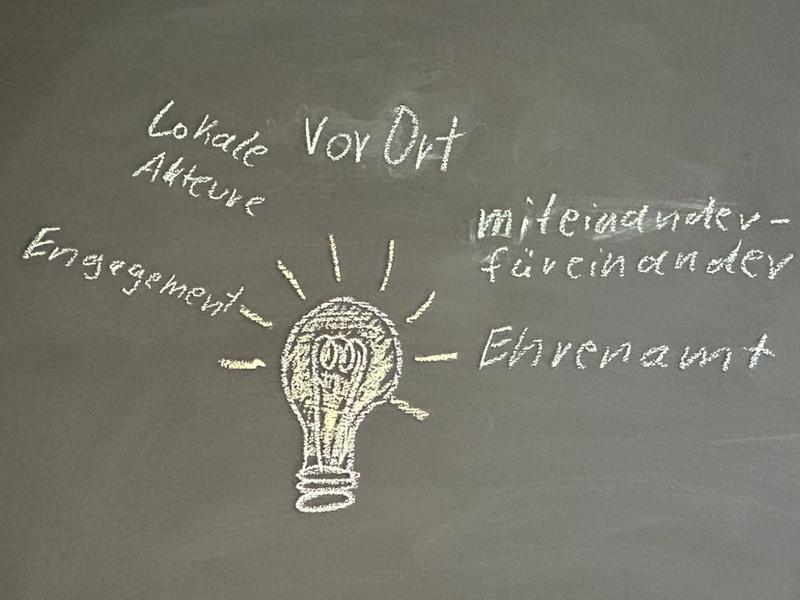 Lokale
Akteure
Vor Ort
Engagement
miteinander-
füreinander
Ehrenamt